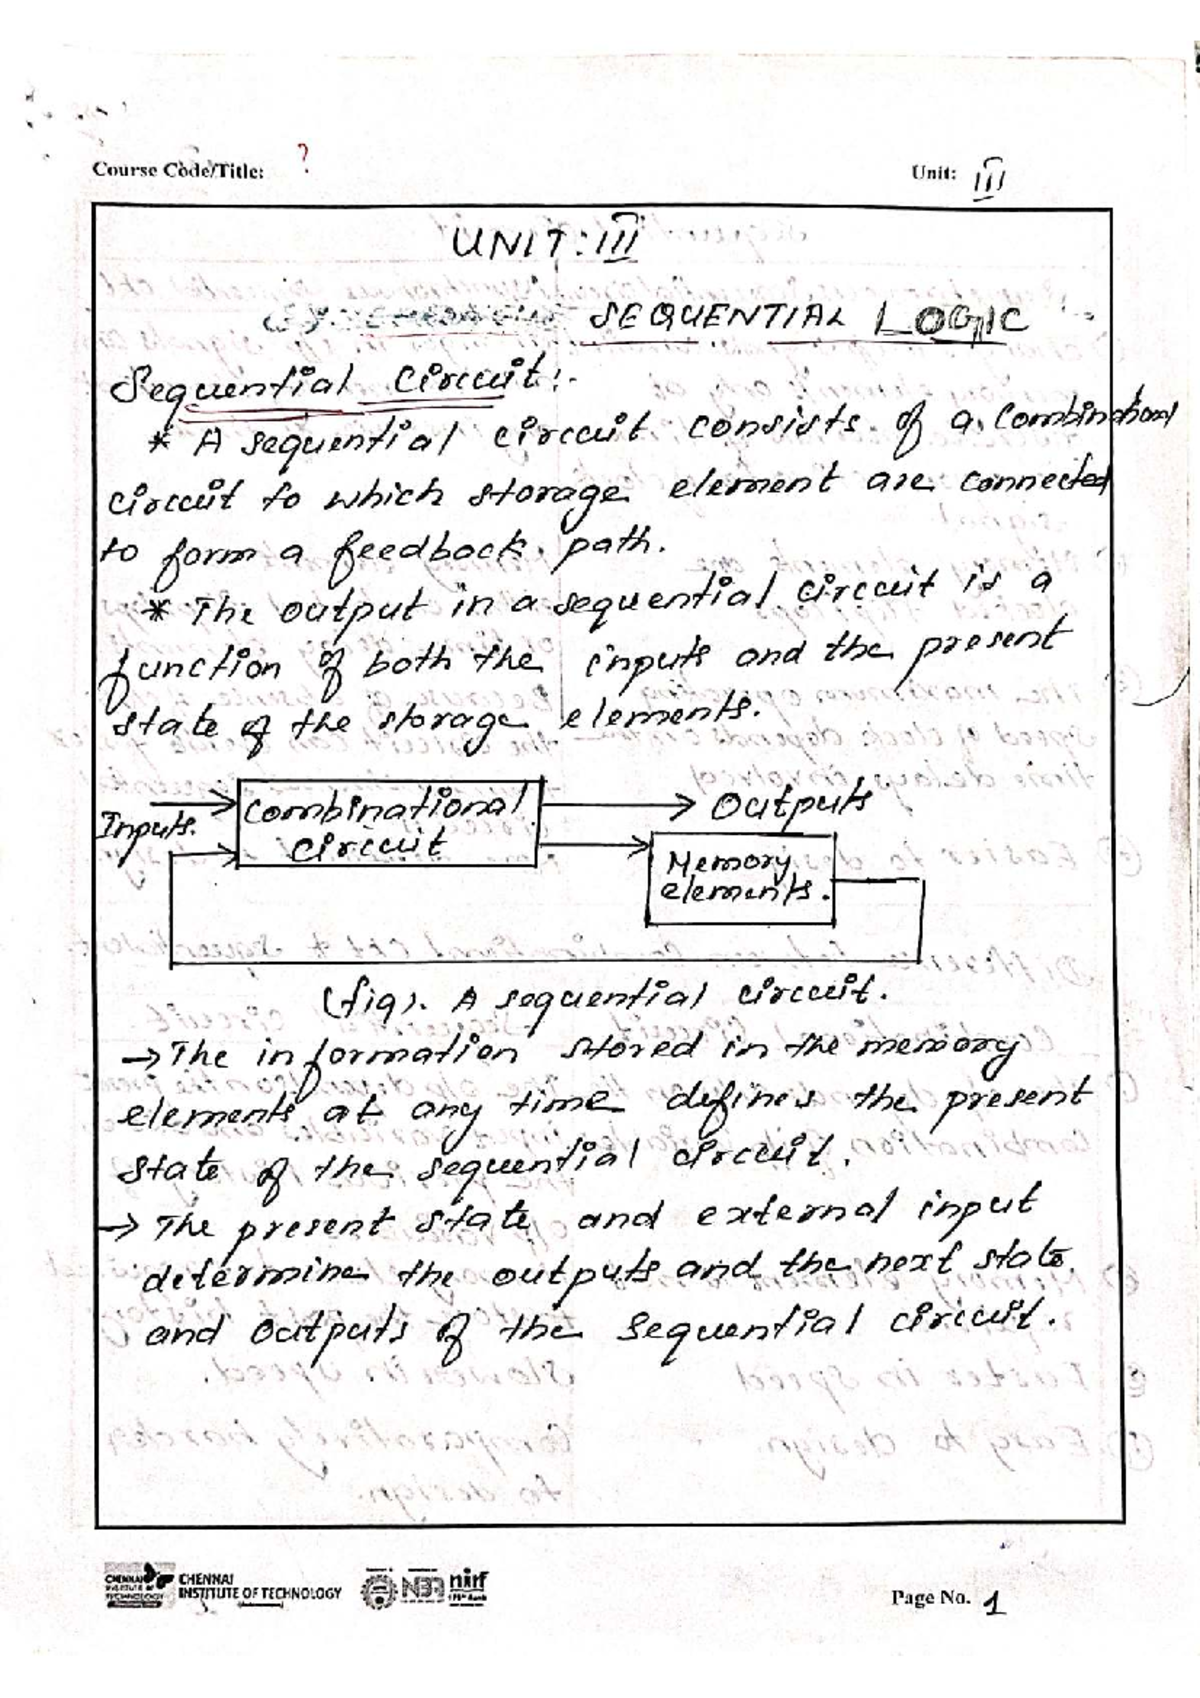 Course Code/Title: ?
Unit: III
UNIT: III
SEQUENTIAL LOGIC
Sequential Circuit:-
* A sequential circuit consists of a combinational
circuit to which storage element are connected
to form a feedback path.
* The output in a sequential circuit is a
function of both the inputs and the present
state of the storage elements.
Inputs.
Combinational
circuit
Outputs
Memory
elements.
(fig). A sequential circuit.
→ The information stored in the memory
elements at any time defines the present
state of the sequential circuit.
→ The present state and external input
determine the outputs and the next state.
and outputs of the sequential circuit.
CHENNAI
INSTITUTE OF TECHNOLOGY
CHENNAI
INSTITUTE OF TECHNOLOGY
NBA
nirf
Page No. 1